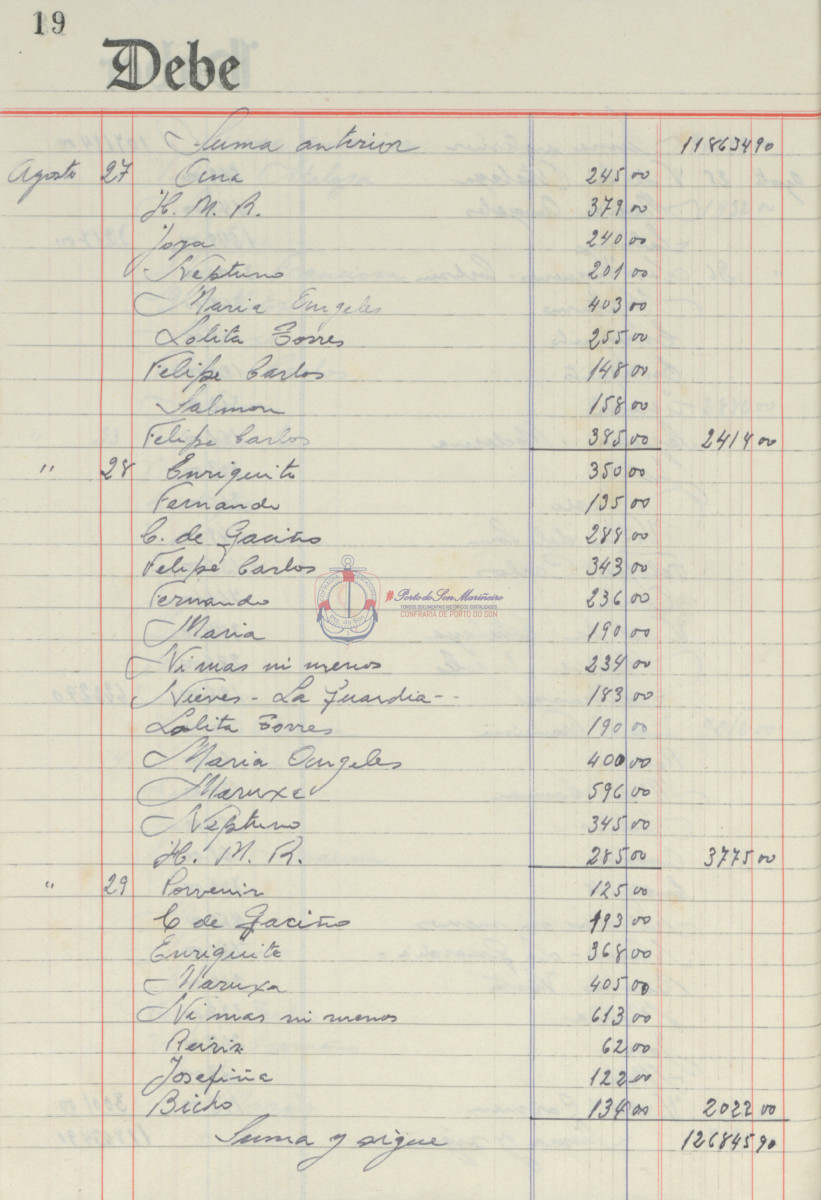 19
Debe
Suma anterior 118634 90
Agosto 27 Ana 245 00
H. M. R. 379 00
Joya 240 00
Neptuno 201 00
Maria Angeles 403 00
Lolita Torres 255 00
Felipe Carlos 148 00
Salmon 158 00
Felipe Carlos 385 00 2414 00
" 28 Enriquito 350 00
Fernando 135 00
C. de Gaciño 288 00
Felipe Carlos 343 00
Fernando 236 00
Maria 190 00
Ni mas ni menos 234 00
Nieves - La Guardia - - 183 00
Lolita Torres 190 00
Maria Angeles 400 00
Maruxa 596 00
Neptuno 345 00
H. M. R. 285 00 3775 00
" 29 Porvenir 125 00
C de Gaciño 193 00
Enriquito 368 00
Maruxa 405 00
Ni mas ni menos 613 00
Reiriz 62 00
Josefina 122 00
Bicho 134 00 2022 00
Suma y sigue 126845 90
#Porto do Son Mariñeiro
FONDOS DOCUMENTAIS HISTÓRICOS DIXITALIZADOS
CONFRARÍA DE PORTO DO SON